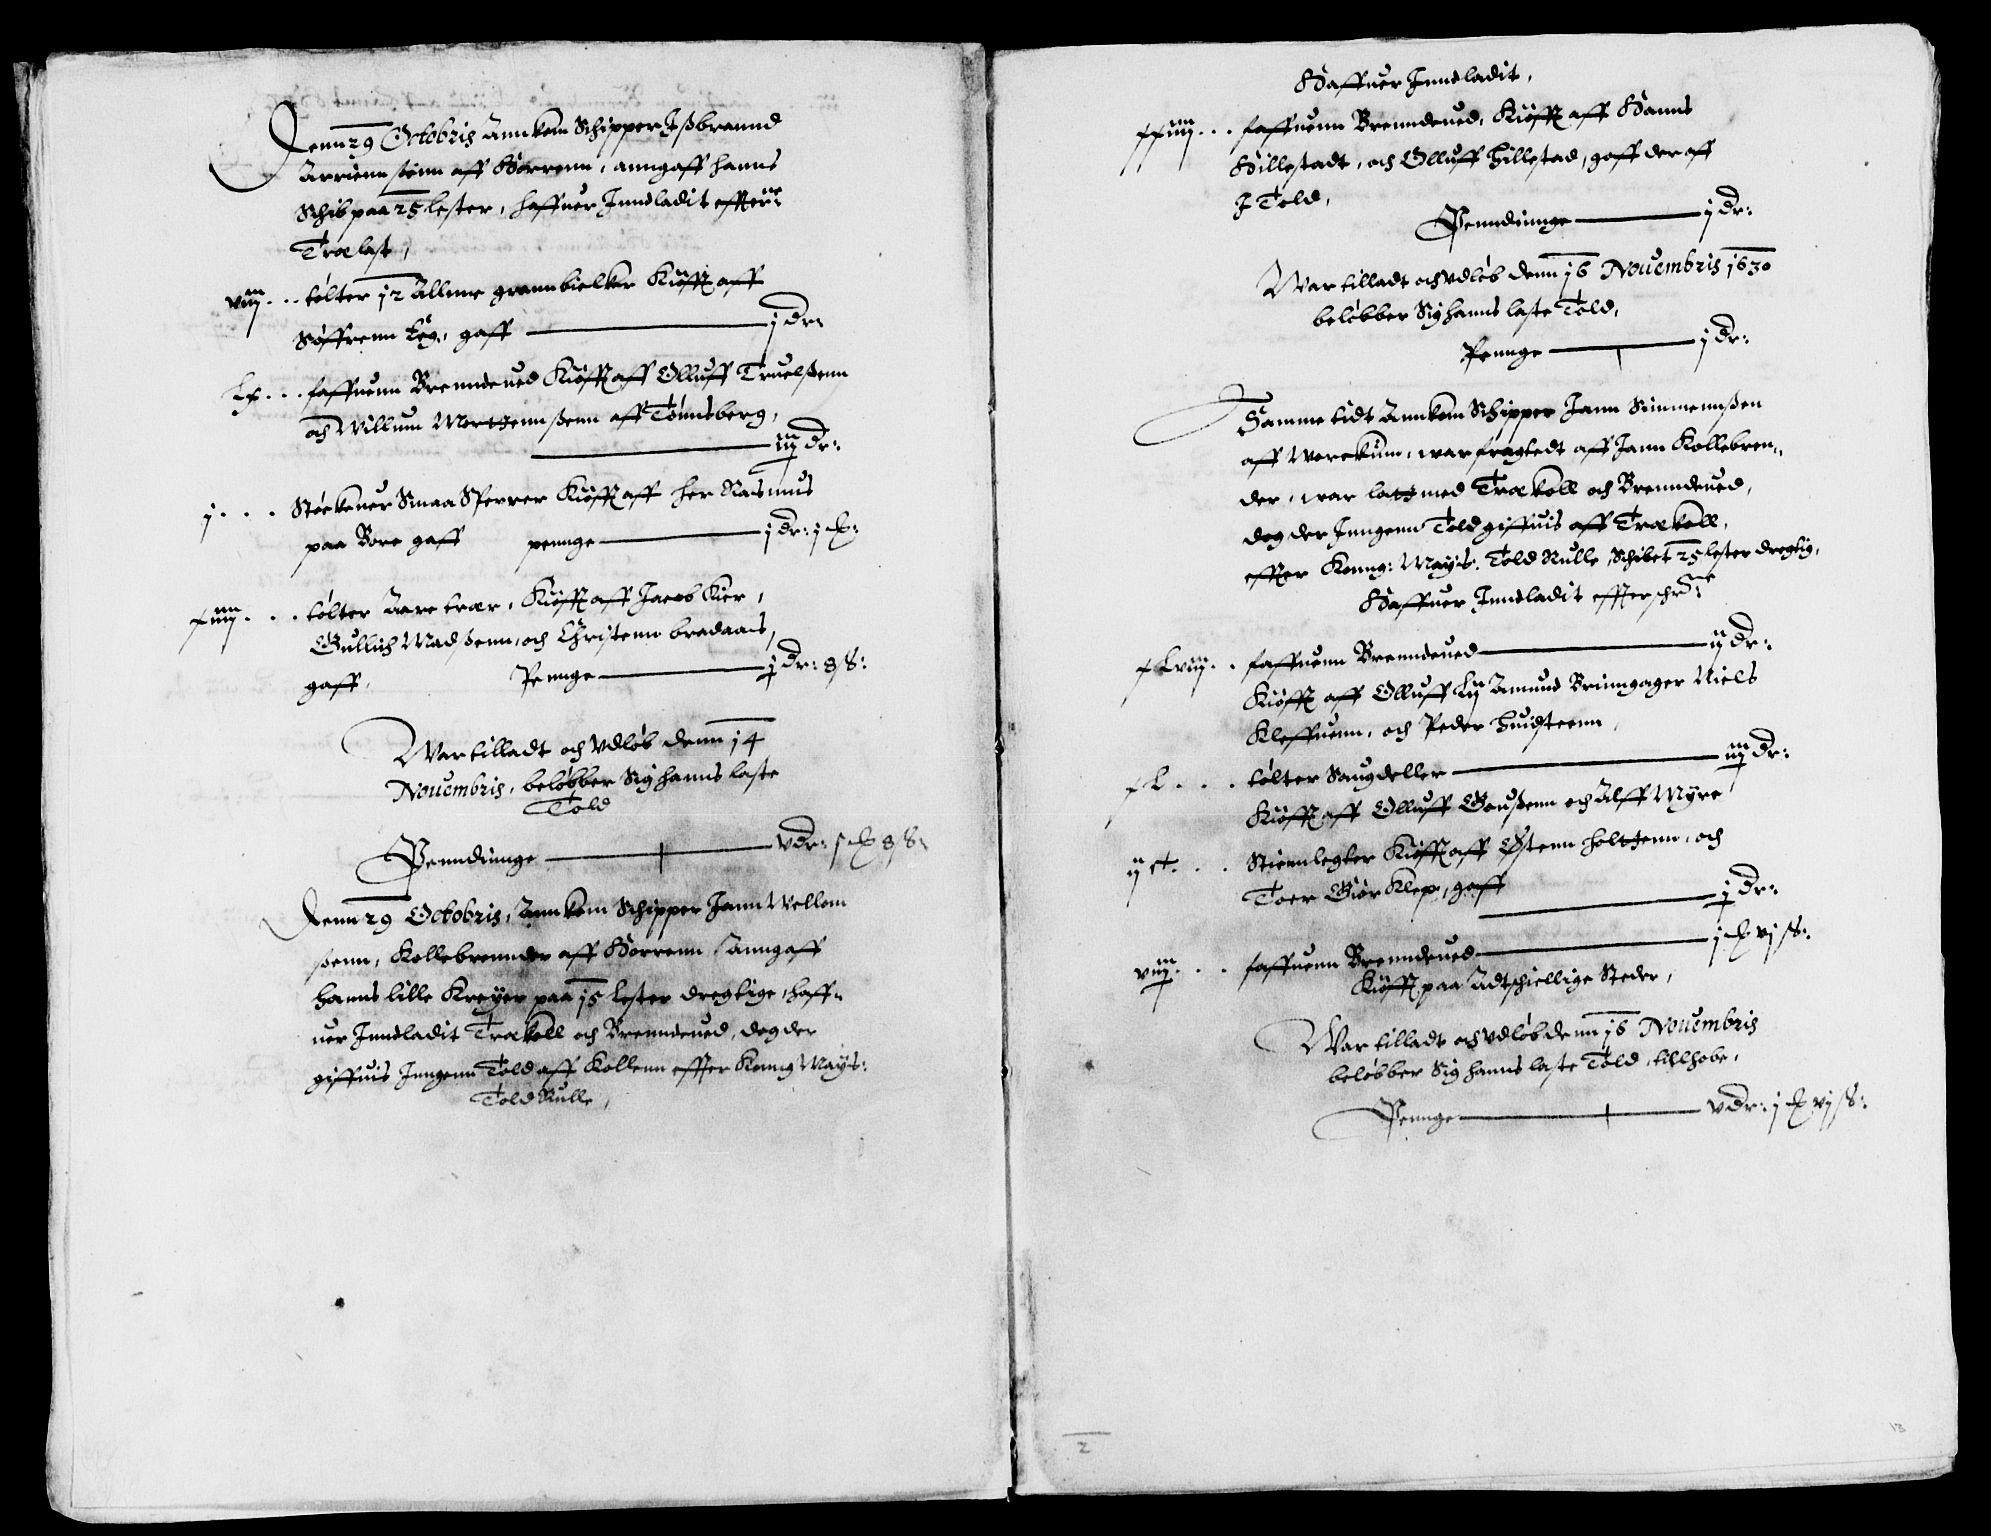 Denn 29 Octobris Annkom Schipper Jßbrannd
Arriennsenn aff Horrenn, anngaff hanns
Schib paa 25 lester, haffuer Inndladit effter:ne
Trælast,
viij ... tolter 12 Allne grannbielker Kiøfft aff
Søffrenn Ley, gaff — j dr:
Lx ... faffuenn Brenndeued Kiøfft aff Olluff Truelßenn
och Willum Mortgennßenn aff Tønnsberg,
— iij dr:
j ... Støckener Smaa Sperrer Kiøfft aff her Rasmus
paa Borre gaff penge — j dr: j
xiiij ... tolter Aare trær, Kiøfft aff Jacob Kier,
Gullich Madßenn, och Christenn bradaas,
gaff, Penge — j dr: 8 ß:
War tilladt och Vdløb denn 14
Nouembris, beløbber Sig hanns laste
Told
Penndinnge — v dr: 8 ß:
Denn 29 Octobris, Annkom Schipper Jann Wellom
ßenn, Kollebrennder aff Horrenn, Anngaff
hanns lille Kreyer paa 15 lester dregtige, haff-
uer Inndladit Trækoll och Brenndeued, dog der
giffuis Inngenn Told aff Kollenn effter Konng May:s:
Told Rulle,
Haffuer Inndladit,
xxiiij ... faffuenn Brenndeued, Kiøfft aff Hanns
Hillestadt, och Olluff Hillestad, gaff der aff
J Told,
Penndinnge — j dr:
War tilladt och Vdløb denn 16 Nouembris 1630
beløbber Sig hanns laste Told,
Pennge — j dr:
Samme tidt Annkom Schipper Jann Simmennßen
aff Worckum, war fragtedt aff Jann Kollebren-
der, war latt med Trækoll och Brenndeued,
dog der Inngenn Told giffuis aff Trækoll,
effter Konng: May:s: Told Rulle, Schibet 25 lester dregtig,
Haffuer Inndladit effterschr:ne
xLviij ... faffuenn Brenndeued — ij dr:
Kiøfft aff Olluff Ly Amund Brunngager Niels
Kleffuenn, och Peder Huidsteenn,
xL ... tolter Saugdeller — iij dr:
Kiøfft aff Olluff Gaußenn och Alff Myre
ij ct. ... Stiennlegter Kiøfft aff Østenn Holtgenn, och
Toer Giør Klep, gaff — j dr:
viij ... faffuenn Brenndeued — j vj ß:
Kiøfft paa Adtschiellige Steder,
War tilladt och Vdløb denn 16 Nouembris
beløbber Sig hanns laste Told, tillhobe,
Pennge — v dr: j vj ß:
2
13